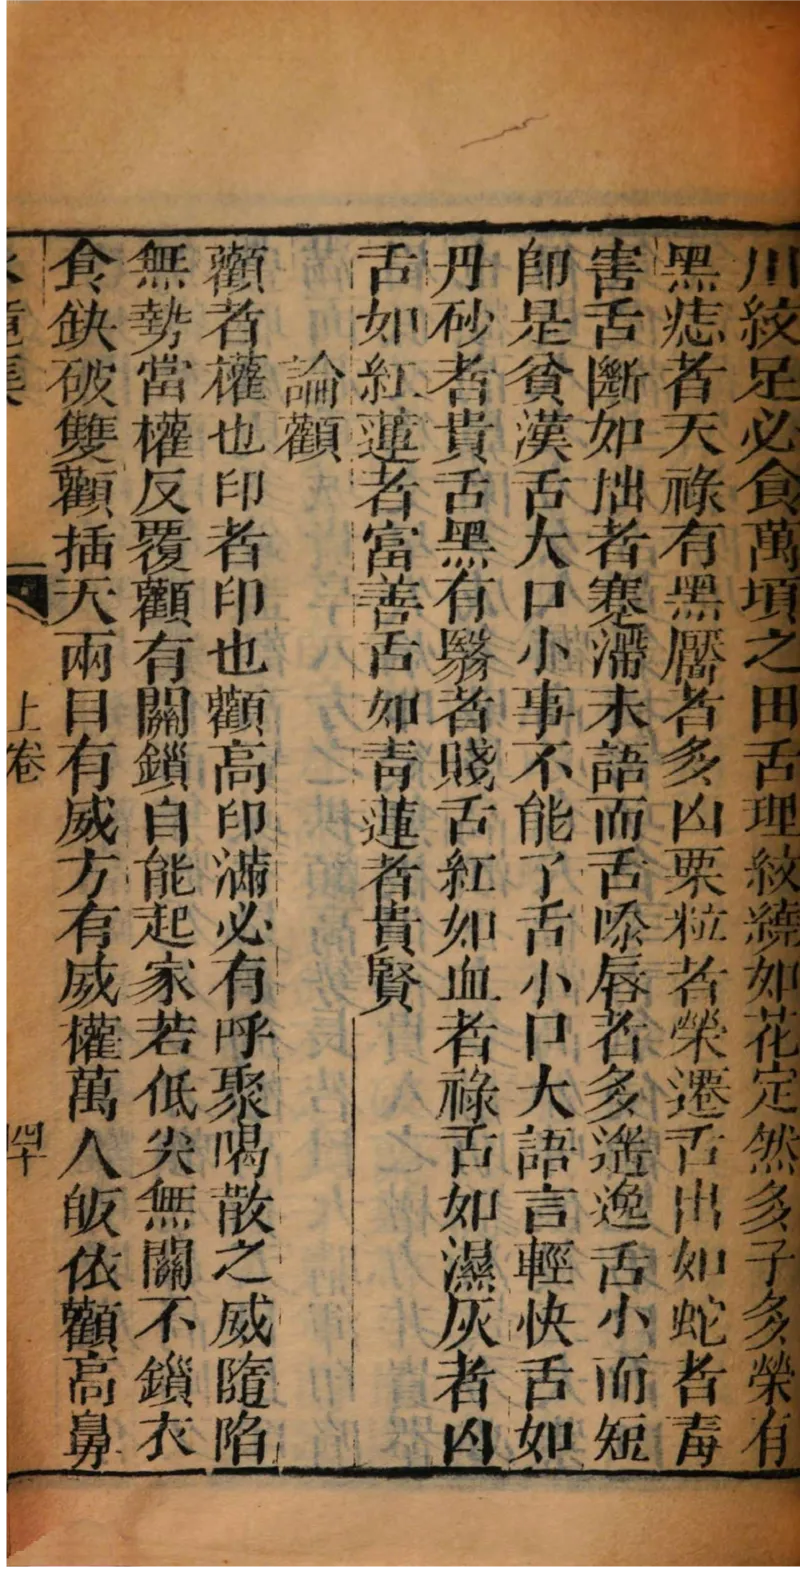 川紋足必食萬頃之田舌理紋繞如花定然多子多榮有
黑痣者天祿有黑靨者多凶粟粒者榮遷舌出如蛇者毒
害舌斷如拙者蹇滯未語而舌㖭唇者多遥逸舌小而短
即是貧漢舌大口小事不能了舌小口大語言輕快舌如
丹砂者貴舌黑有翳者賤舌紅如血者祿舌如濕灰者凶
舌如紅蓮者富善舌如青蓮者貴賢
論顴
顴者權也印者印也顴高印滿必有呼聚喝散之威隨陷
無勢當權反覆顴有關鎖自能起家若低尖無關不鎖衣
食缺破雙顴插天兩目有威方有威權萬人皈依顴高鼻
上卷
四十